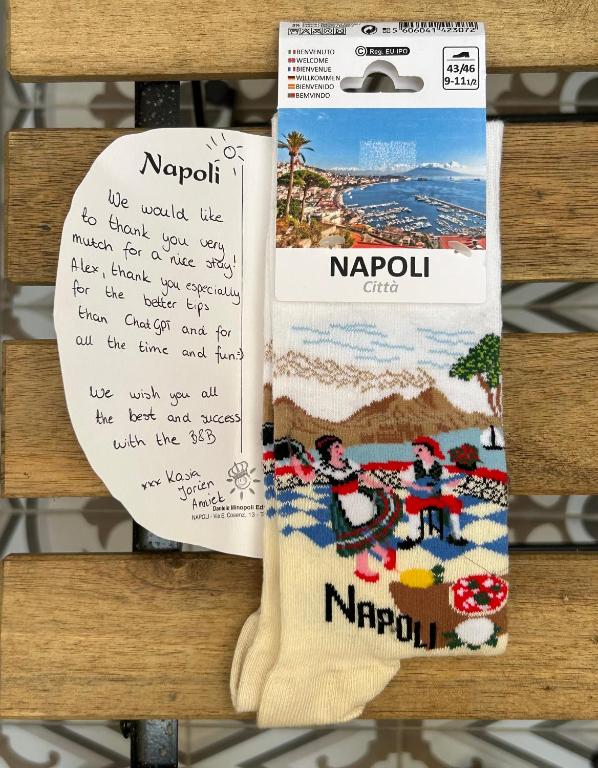 Napoli
We would like
to thank you very
mutch for a nice stay!
Alex, thank you especially
for the better tips
than ChatGPT and for
all the time and fun:)
We wish you all
the best and success
with the B&B
xxx Kasia
Jorien
Amiek
Daniele Minopoli Ed
NAPOLI - Via E. Cosenz, 13 - T
5 606041 423072
BENVENUTO
WELCOME
BIENVENUE
WILLKOMMEN
BIENVENIDO
BEMVINDO
C Reg. EU-IPO
43/46
9-11 1/2
NAPOLI
Città
NAPOLI